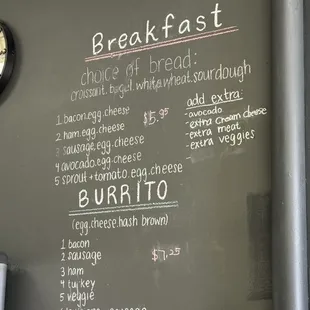 Breakfast
choice of bread:
croissant.bagel.white.wheat.sourdough
1.bacon.egg.cheese
2 ham.egg.cheese
3 sausage.egg.cheese
4 avocado.egg.cheese
5 sprout+tomato.egg.cheese
$5.95
add extra:
-avocado
-extra cream cheese
-extra meat
-extra veggies
BURRITO
(egg.cheese.hash brown)
1 bacon
2 sausage
3 ham
4 turkey
5 veggie
$7.25
sausage